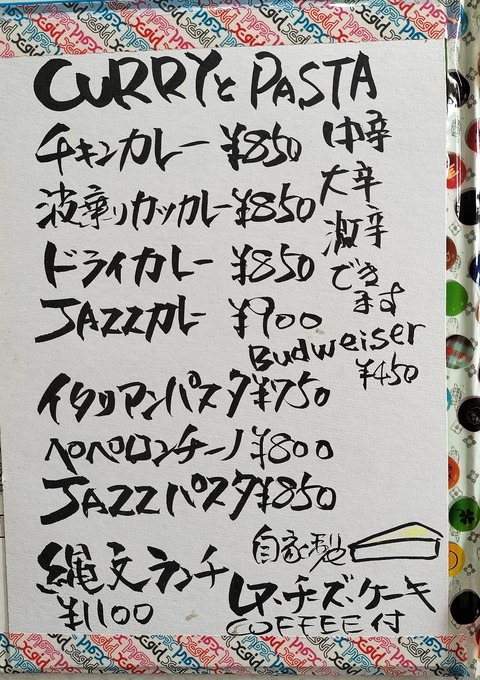 CURRYと PASTA
チキンカレー ¥850
波乗りカツカレー ¥850
ドライカレー ¥850
JAZZカレー ¥900
中辛
大辛
激辛
できます
Budweiser
¥450
イタリアンパスタ ¥750
ペペロンチーノ ¥800
JAZZパスタ ¥850
縄文ランチ
¥1100
自家製
レアーチーズケーキ
COFFEE付